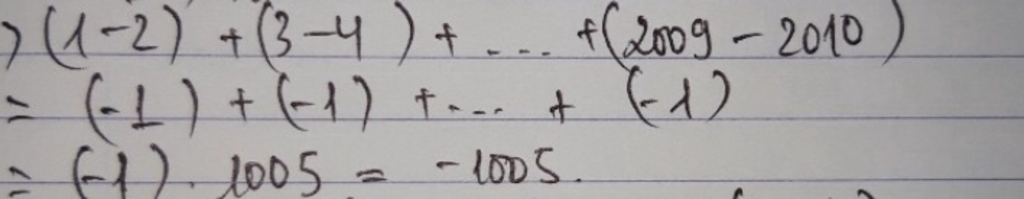 ) (1-2) + (3-4) + .... + (2009 - 2010)
= (-1) + (-1) + .... + (-1)
= (-1) . 1005 = -1005.